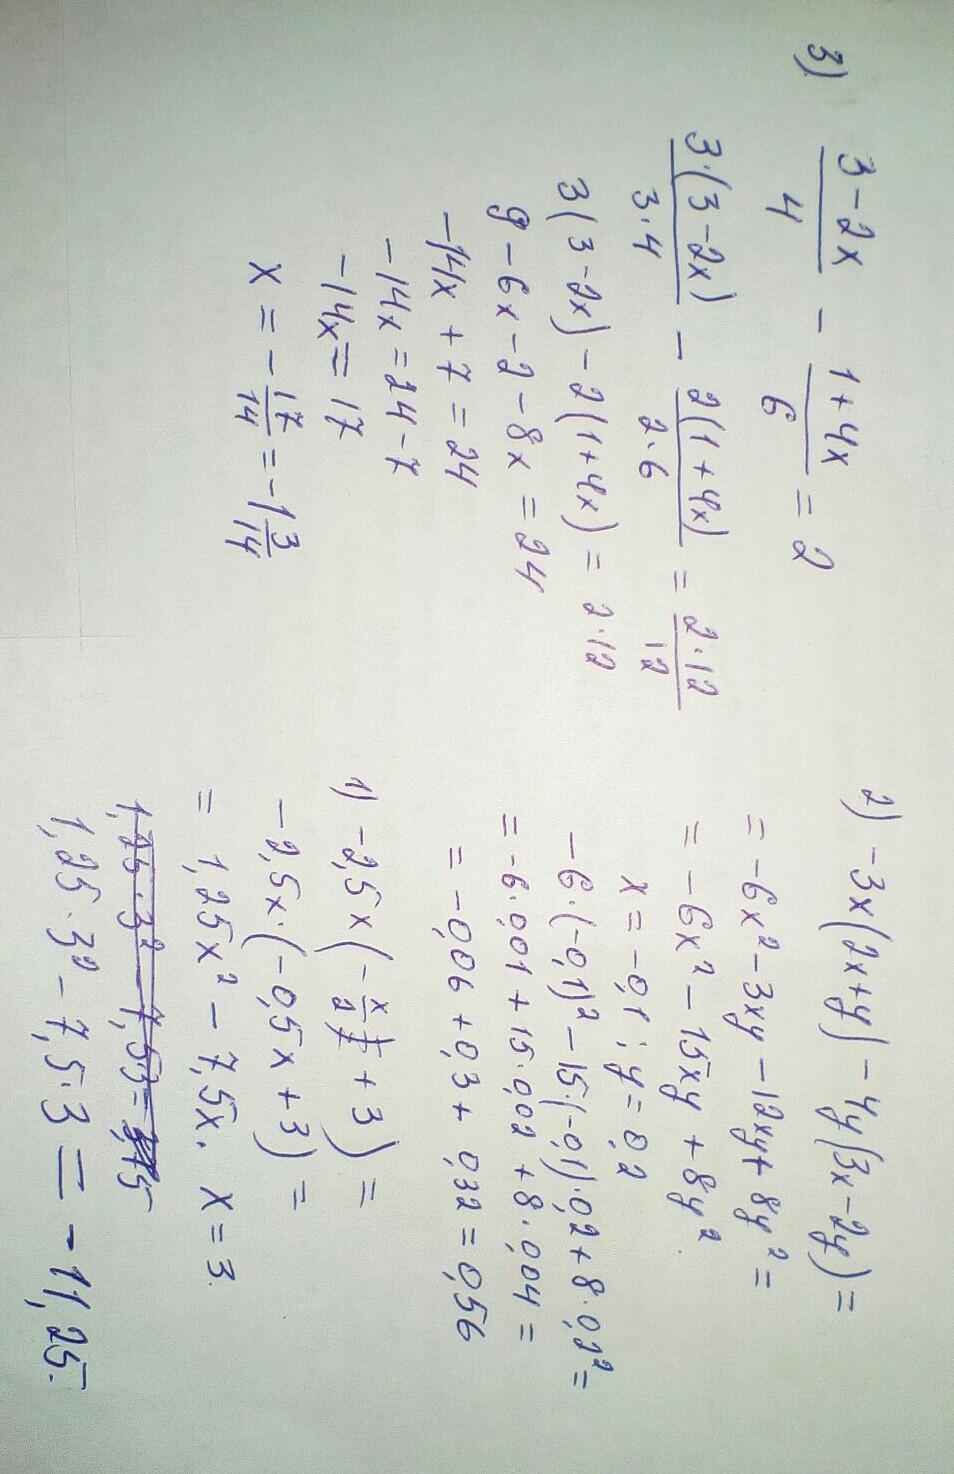 3) (3-2x)/4 - (1+4x)/6 = 2
3·(3-2x)/3·4 - 2(1+4x)/2·6 = 2·12/12
3(3-2x)-2(1+4x) = 2·12
9-6x-2-8x = 24
-14x+7 = 24
-14x = 24-7
-14x = 17
x = -17/14 = -1 3/14
2) -3x(2x+y)-4y(3x-2y) =
= -6x²-3xy-12xy+8y² =
= -6x²-15xy+8y².
x = -0,1; y = 0,2
-6·(-0,1)²-15·(-0,1)·0,2+8·0,2² =
= -6·0,01+15·0,02+8·0,04 =
= -0,06+0,3+0,32 = 0,56
1) -2,5x(-x/2+3) =
-2,5x·(-0,5x+3) =
= 1,25x²-7,5x. x=3.
1,25·3²-7,5·3 = -11,25.